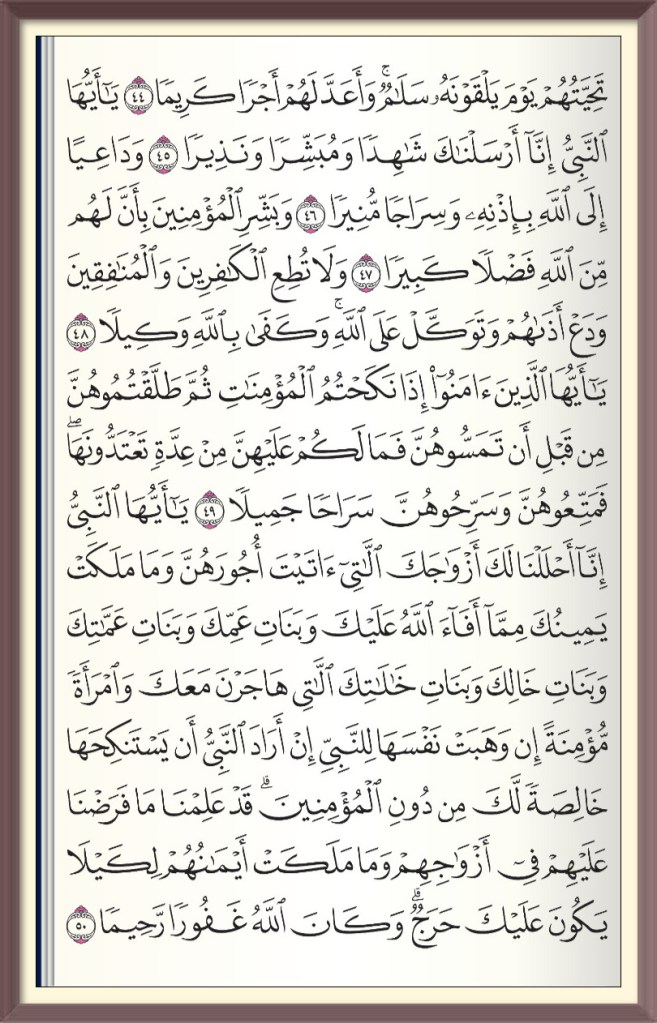 تَحِيَّتُهُمْ يَوْمَ يَلْقَوْنَهُۥ سَلَٰمٌۚ وَأَعَدَّ لَهُمْ أَجْرًا كَرِيمًا ٤٤ يَٰٓأَيُّهَا
ٱلنَّبِيُّ إِنَّآ أَرْسَلْنَٰكَ شَٰهِدًا وَمُبَشِّرًا وَنَذِيرًا ٤٥ وَدَاعِيًا
إِلَى ٱللَّهِ بِإِذْنِهِۦ وَسِرَاجًا مُّنِيرًا ٤٦ وَبَشِّرِ ٱلْمُؤْمِنِينَ بِأَنَّ لَهُم
مِّنَ ٱللَّهِ فَضْلًا كَبِيرًا ٤٧ وَلَا تُطِعِ ٱلْكَٰفِرِينَ وَٱلْمُنَٰفِقِينَ
وَدَعْ أَذَىٰهُمْ وَتَوَكَّلْ عَلَى ٱللَّهِۚ وَكَفَىٰ بِٱللَّهِ وَكِيلًا ٤٨
يَٰٓأَيُّهَا ٱلَّذِينَ ءَامَنُوٓا۟ إِذَا نَكَحْتُمُ ٱلْمُؤْمِنَٰتِ ثُمَّ طَلَّقْتُمُوهُنَّ
مِن قَبْلِ أَن تَمَسُّوهُنَّ فَمَا لَكُمْ عَلَيْهِنَّ مِنْ عِدَّةٍ تَعْتَدُّونَهَاۖ
فَمَتِّعُوهُنَّ وَسَرِّحُوهُنَّ سَرَاحًا جَمِيلًا ٤٩ يَٰٓأَيُّهَا ٱلنَّبِيُّ
إِنَّآ أَحْلَلْنَا لَكَ أَزْوَٰجَكَ ٱلَّٰتِيٓ ءَاتَيْتَ أُجُورَهُنَّ وَمَا مَلَكَتْ
يَمِينُكَ مِمَّآ أَفَآءَ ٱللَّهُ عَلَيْكَ وَبَنَاتِ عَمِّكَ وَبَنَاتِ عَمَّٰتِكَ
وَبَنَاتِ خَالِكَ وَبَنَاتِ خَٰلَٰتِكَ ٱلَّٰتِي هَاجَرْنَ مَعَكَ وَٱمْرَأَةً
مُّؤْمِنَةً إِن وَهَبَتْ نَفْسَهَا لِلنَّبِيِّ إِنْ أَرَادَ ٱلنَّبِيُّ أَن يَسْتَنكِحَهَا
خَالِصَةً لَّكَ مِن دُونِ ٱلْمُؤْمِنِينَۗ قَدْ عَلِمْنَا مَا فَرَضْنَا
عَلَيْهِمْ فِيٓ أَزْوَٰجِهِمْ وَمَا مَلَكَتْ أَيْمَٰنُهُمْ لِكَيْلَا
يَكُونَ عَلَيْكَ حَرَجٌۗ وَكَانَ ٱللَّهُ غَفُورًا رَّحِيمًا ٥٠